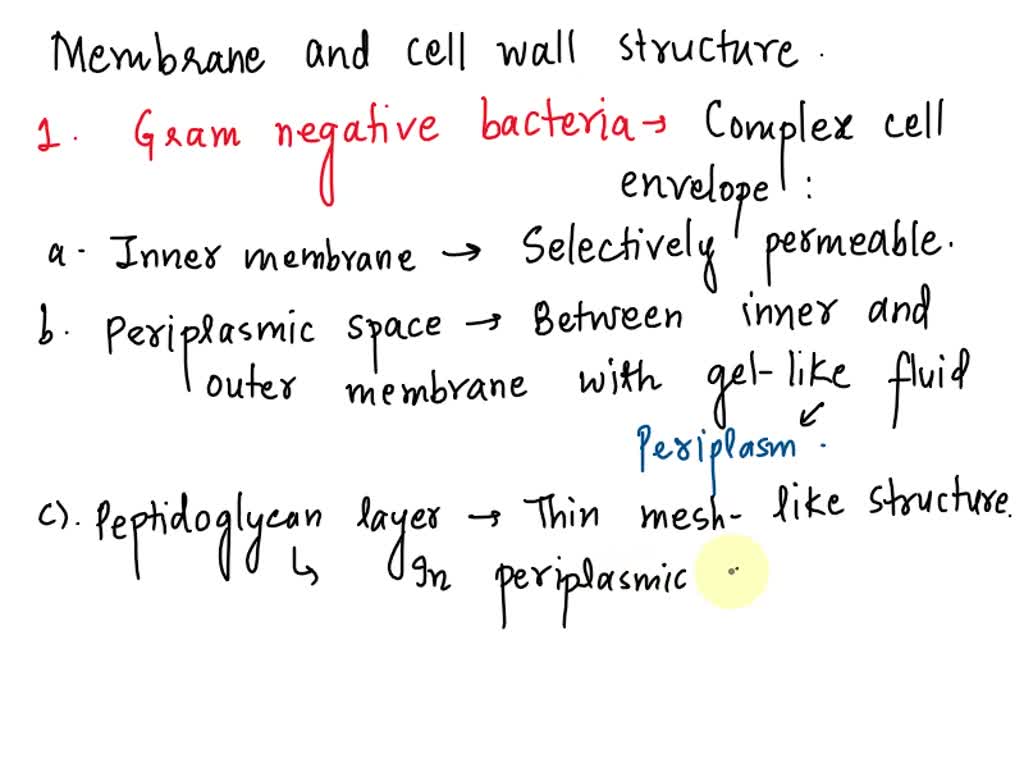 Membrane and cell wall structure.
1. Gram negative bacteria → Complex cell
envelope :
a- Inner membrane → Selectively permeable.
b. Periplasmic space → Between inner and
outer membrane with gel-like fluid
↙
Periplasm.
c). Peptidoglycan layer → Thin mesh-like structure.
↳ In periplasmic